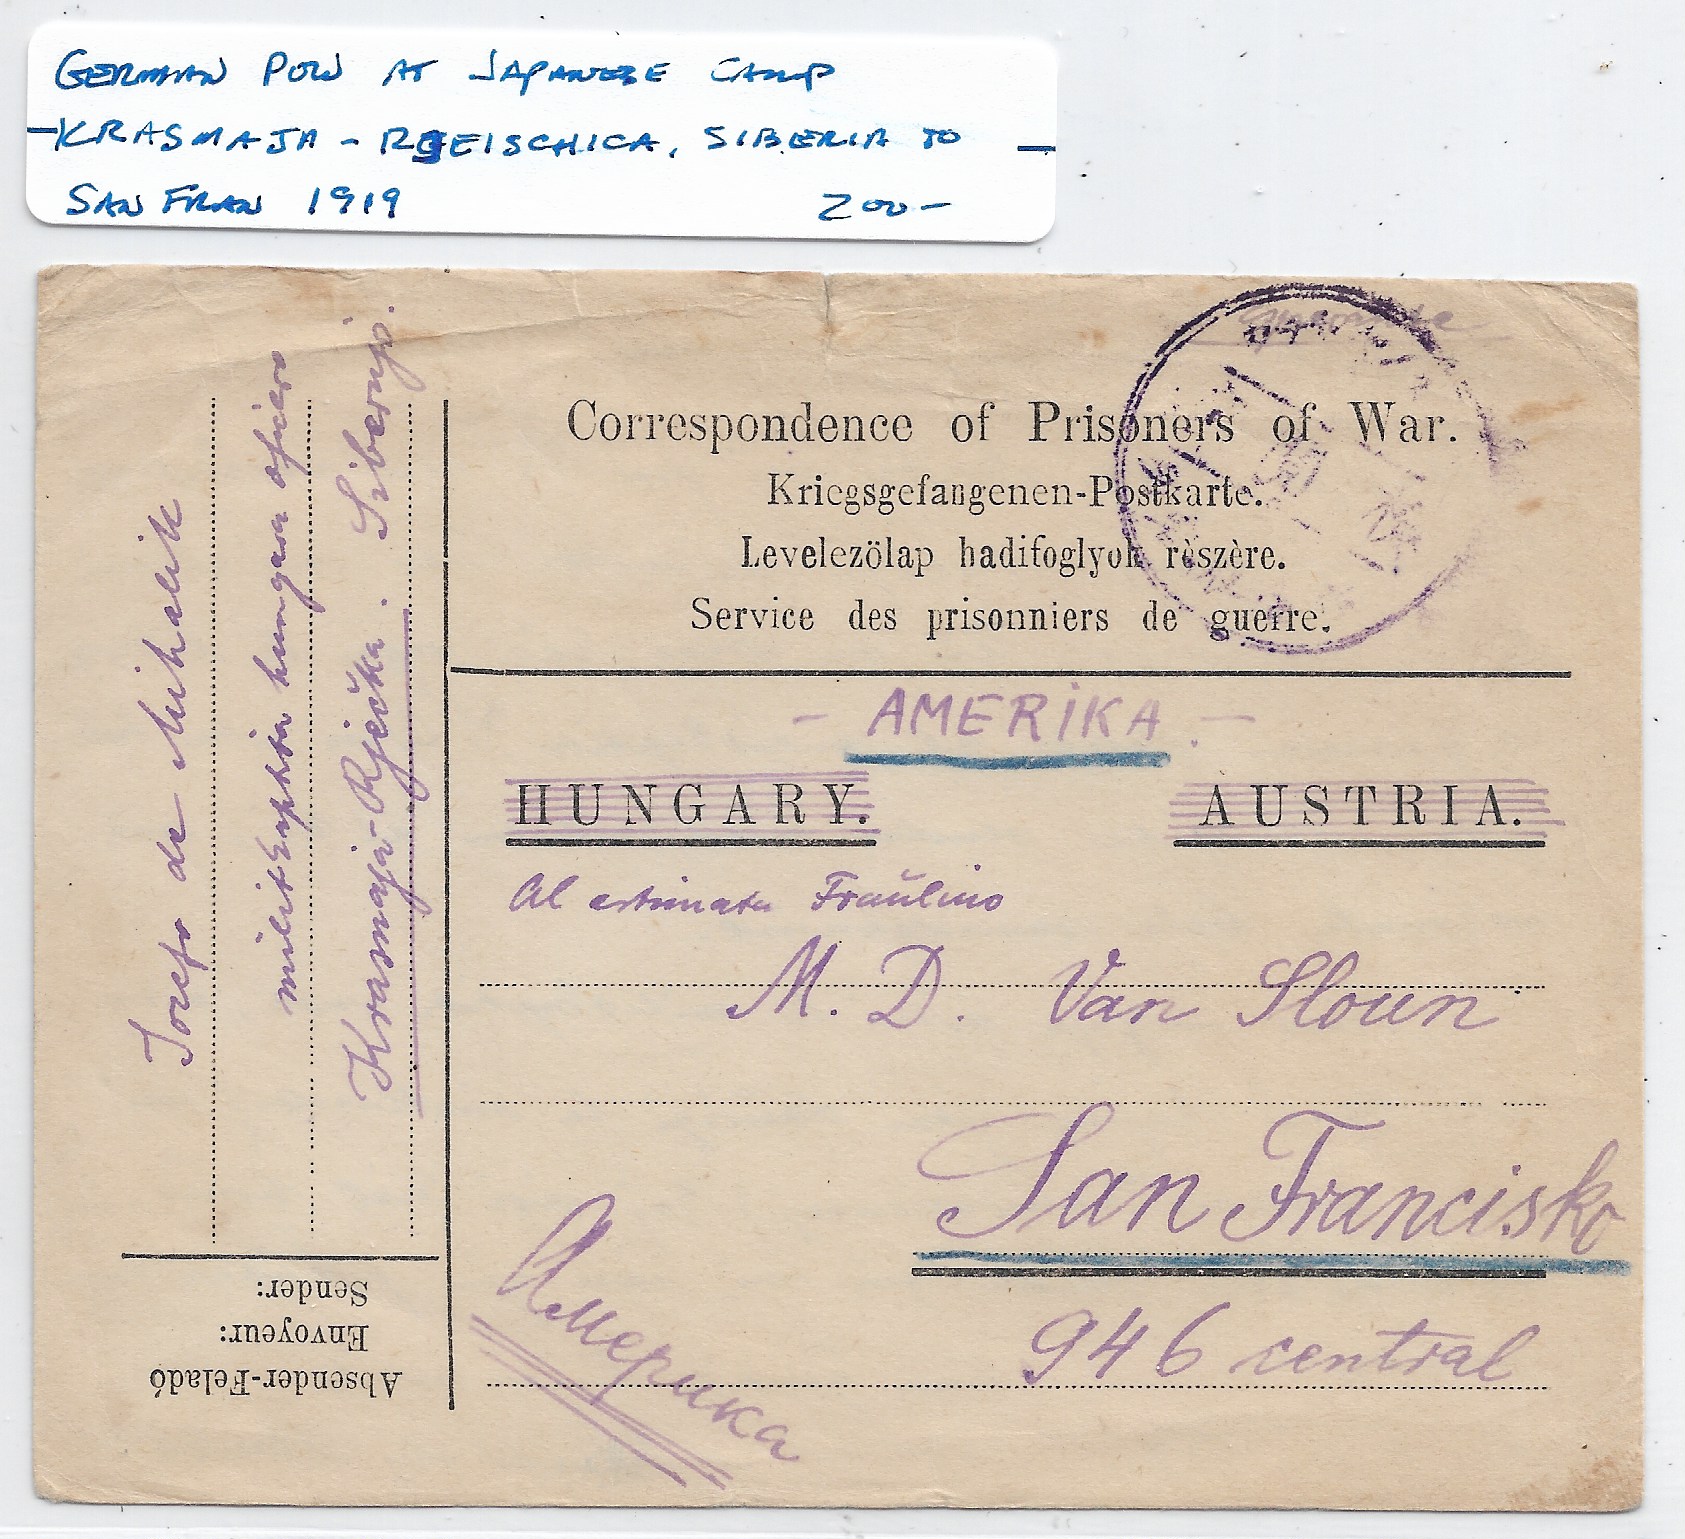 GERMAN POW AT JAPANESE CAMP
KRASMAJA - RGEISCHICA, SIBERIA TO
SAN FRAN 1919 200-
Correspondence of Prisoners of War.
Kriegsgefangenen-Postkarte.
Levelezölap hadifoglyok rèszère.
Service des prisonniers de guerre.
- AMERiKA. -
HUNGARY. AUSTRIA.
Al estimata Fraŭlino
M. D. Van Sloun
San Francisko
946 central
Америка
Jozefo de Mihalik
hungara oficiro
Krasnaja-Rječka. Siberujo.
Sender:
Envoyeur:
Absender-Feladó